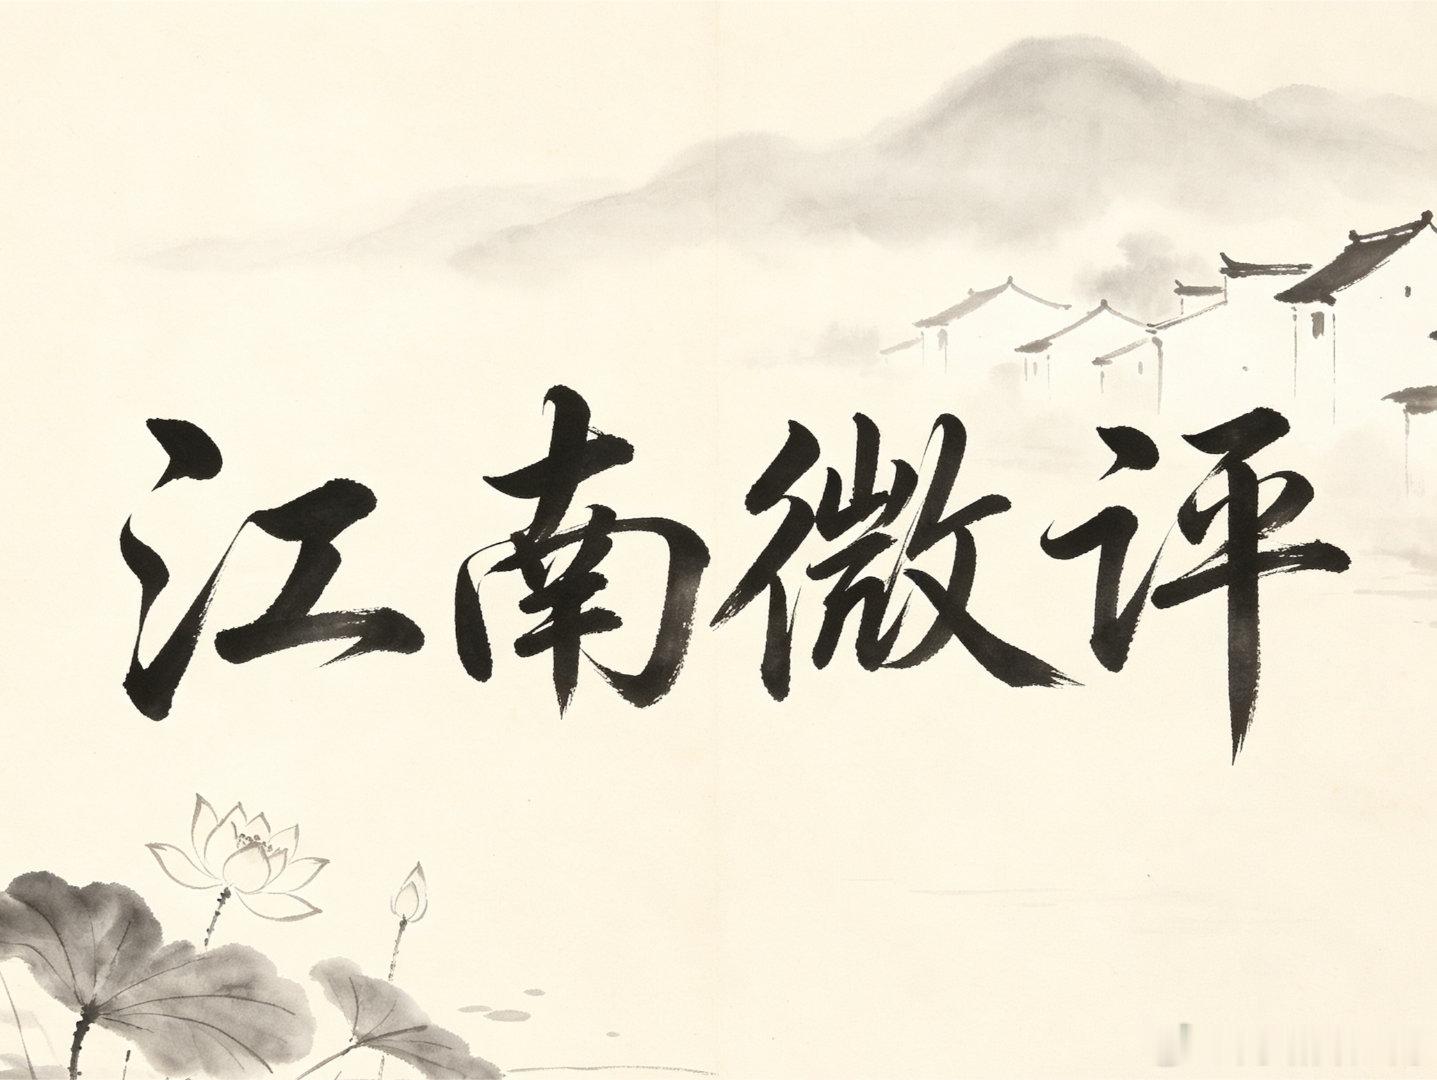 江南微评